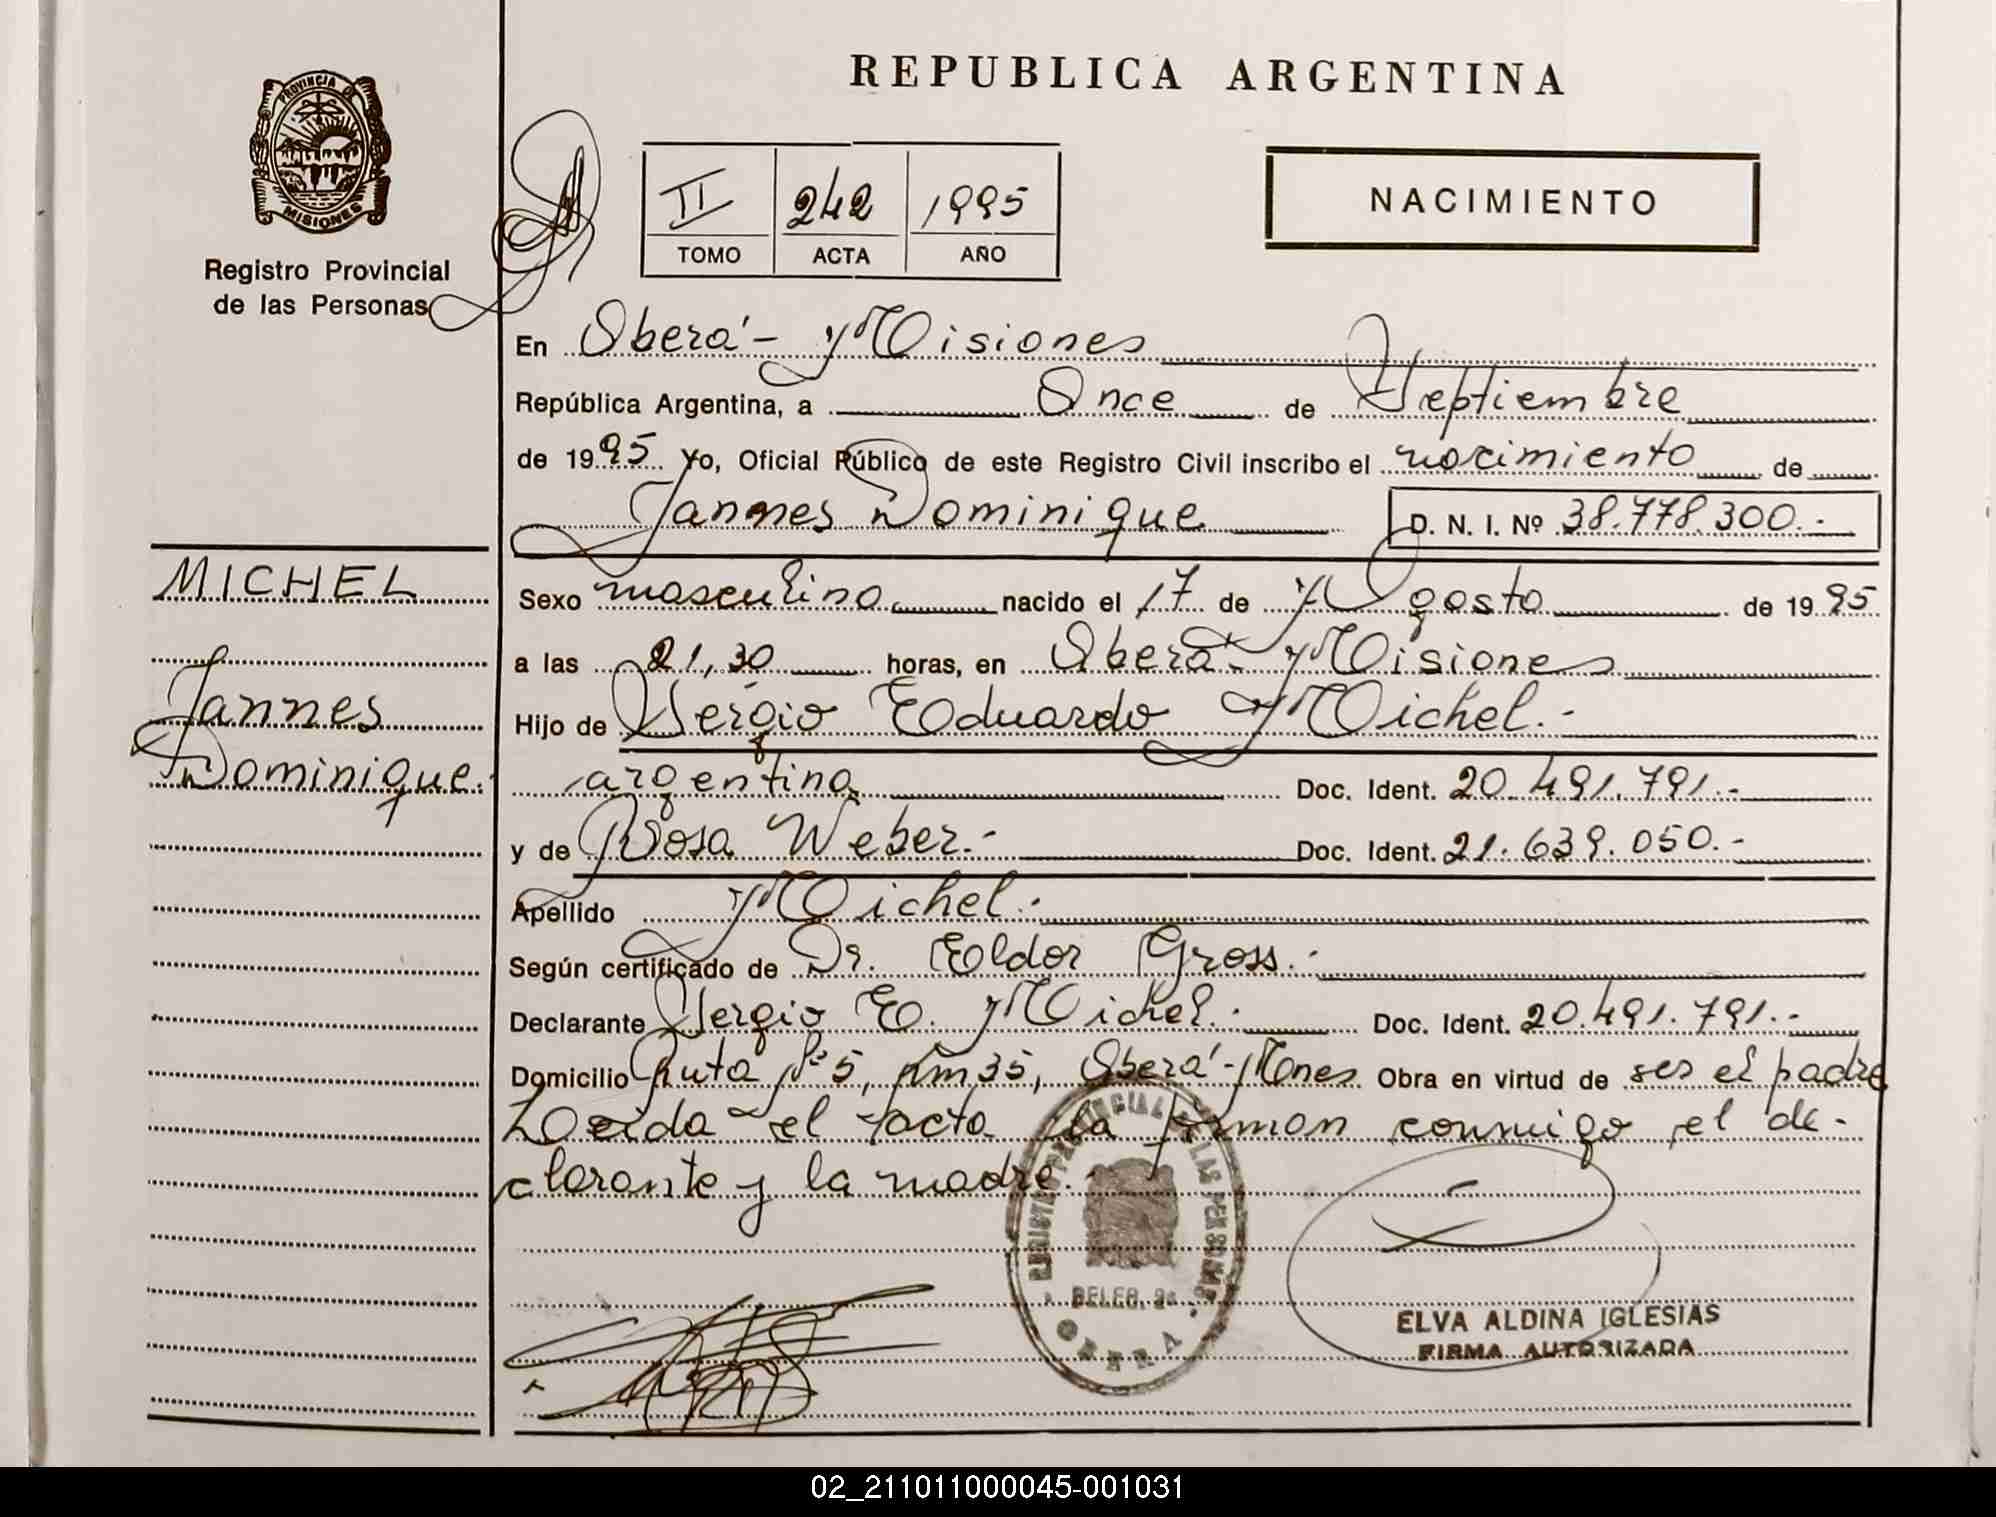 REPUBLICA ARGENTINA
PROVINCIA DE
MISIONES
Registro Provincial
de las Personas
II 242 1995
TOMO ACTA AÑO
NACIMIENTO
En Oberá - Misiones
República Argentina, a Once de Septiembre
de 1995 Yo, Oficial Público de este Registro Civil inscribo el nacimiento de
Jannes Dominique D. N. I. Nº 38.778.300.-
MICHEL
Jannes
Dominique.
Sexo masculino nacido el 17 de Agosto de 1995
a las 21,30 horas, en Oberá - Misiones
Hijo de Sergio Eduardo Michel.-
argentina Doc. Ident. 20.491.791.-
y de Rosa Weber.- Doc. Ident. 21.639.050.-
Apellido Michel.-
Según certificado de Dr. Eldor Gross.-
Declarante Sergio E. Michel.- Doc. Ident. 20.491.791.-
Domicilio Ruta Nº 5, Km 35, Oberá - Mnes. Obra en virtud de ser el padre
Leida el acta la firman conmigo el de-
clarante y la madre.-
REGISTRO PROVINCIAL DE LAS PERSONAS
OBERA
ELVA ALDINA IGLESIAS
FIRMA AUTORIZADA
02_211011000045-001031